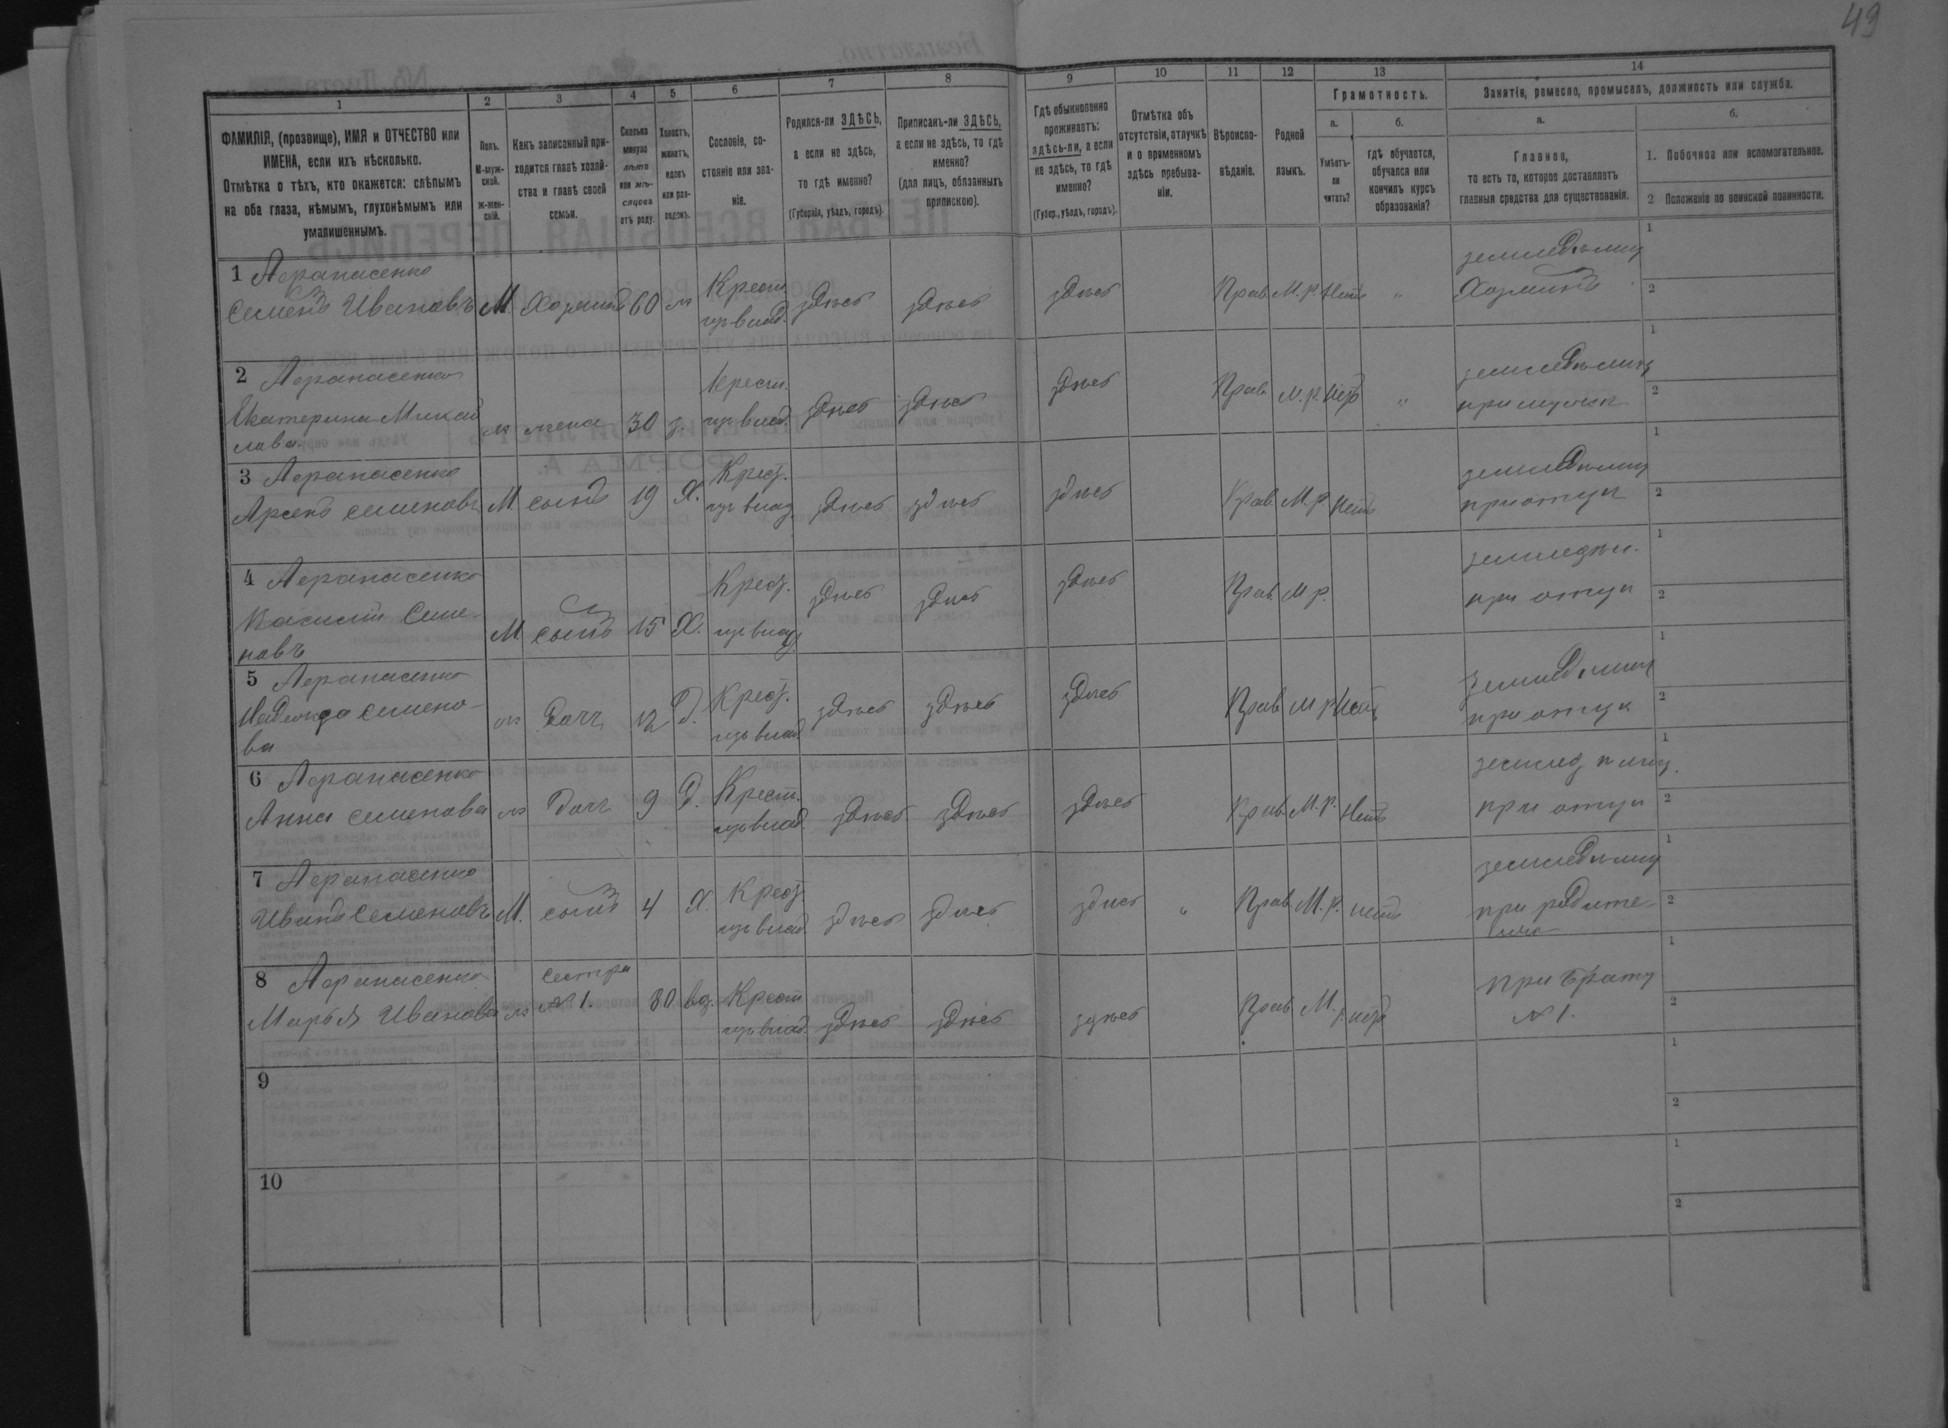 49
1
2
3
4
5
6
7
8
9
10
11
12
13
14
ФАМИЛІЯ, (прозвище), ИМЯ и ОТЧЕСТВО или
ИМЕНА, если ихъ нѣсколько.
Отмѣтка о тѣхъ, кто окажется: слѣпымъ
на оба глаза, нѣмымъ, глухонѣмымъ или
умалишеннымъ.
Полъ.
М-муж-
ской.
Ж-жен-
скій.
Какъ записанный при-
ходится главѣ хозяй-
ства и главѣ своей
семьи.
Сколько
минуло
лѣтъ
или мѣ-
сяцевъ
отъ роду.
Холостъ,
женатъ,
вдовъ
или раз-
веденъ.
Сословіе, со-
стояніе или зва-
ніе.
Родился-ли ЗДѢСЬ,
а если не здѣсь,
то гдѣ именно?
(Губернія, уѣздъ, городъ).
Приписанъ-ли ЗДѢСЬ,
а если не здѣсь, то гдѣ
именно?
(для лицъ, обязанныхъ
припискою).
Гдѣ обыкновенно
проживаетъ:
здѣсь-ли, а если
не здѣсь, то гдѣ
именно?
(Губер., уѣздъ, городъ).
Отмѣтка объ
отсутствіи, отлучкѣ
и о временномъ
здѣсь пребыва-
ніи.
Вѣроиспо-
вѣданіе.
Родной
языкъ.
Грамотность.
а.
Умѣетъ-
ли
читать?
б.
гдѣ обучается,
обучался или
кончилъ курсъ
образованія?
Занятіе, ремесло, промыселъ, должность или служба.
а.
Главное,
то есть то, которое доставляетъ
главныя средства для существованія.
б.
1. Побочное или вспомогательное.
2 Положеніе по воинской повинности.
1 Афанасенко
Семенъ Ивановъ М. Хозяинъ 60 ж Крест. здѣсь здѣсь здѣсь Прав. М.р. Нѣтъ „ Хозяинъ
2 Афанасенко
Екатерина Михай
лова ж жена 30 з. Крест. здѣсь здѣсь здѣсь Прав. М.р. нѣтъ „
3 Афанасенко
Арсенъ Семеновъ М сынъ 19 Х. Крест. здѣсь здѣсь здѣсь Прав. М.р. нѣтъ при отцѣ
4 Афанасенко
Василій Семе-
новъ М сынъ 15 Х. Крест. здѣсь здѣсь здѣсь Прав. М р. при отцѣ
5 Афанасенко
Надежда Семено-
ва ж Дочь 12 Д. Крест. здѣсь здѣсь здѣсь Прав. М р нѣтъ при отцѣ
6 Афанасенко
Анна Семенова ж Дочь 9 Д. Крест. здѣсь здѣсь здѣсь Прав. М.р. Нѣтъ при отцѣ
7 Афанасенко
Иванъ Семеновъ М. сынъ 4 Х. Крест. здѣсь здѣсь здѣсь „ Прав. М.р. нѣтъ при родите-
8 Афанасенко
Марья Иванова ж сестра № 1. 80 вд. Крест. здѣсь здѣсь здѣсь Прав. М.р. нѣтъ при брату
№ 1.
9
10